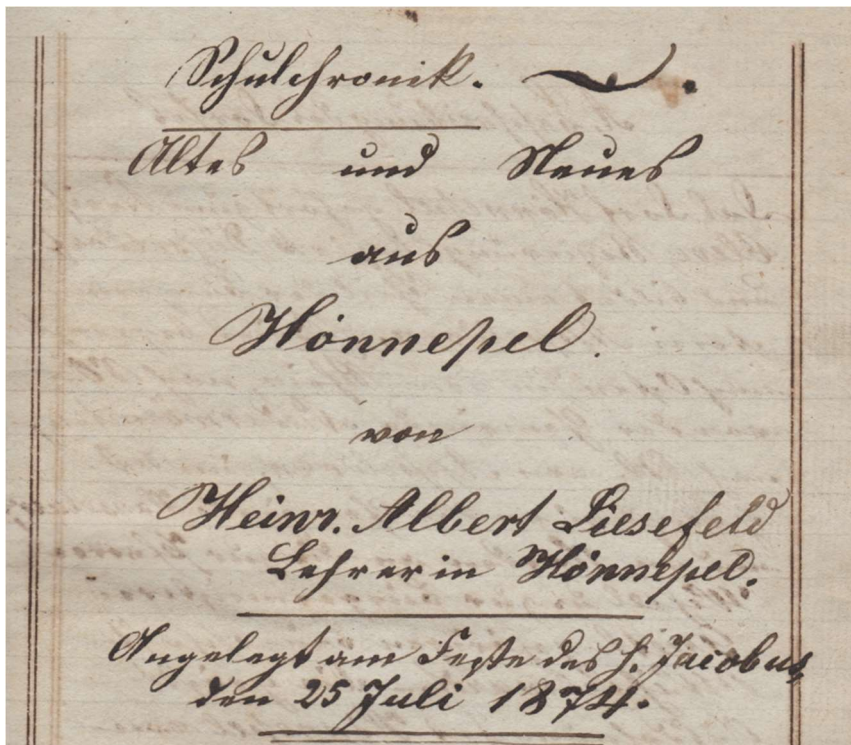 Schulchronik.
Altes und Neues
aus
Hönnepel.
von
Heinr. Albert Liesefeld
Lehrer in Hönnepel.
Angelegt am Feste des h. Jacobus,
den 25 Juli 1874.